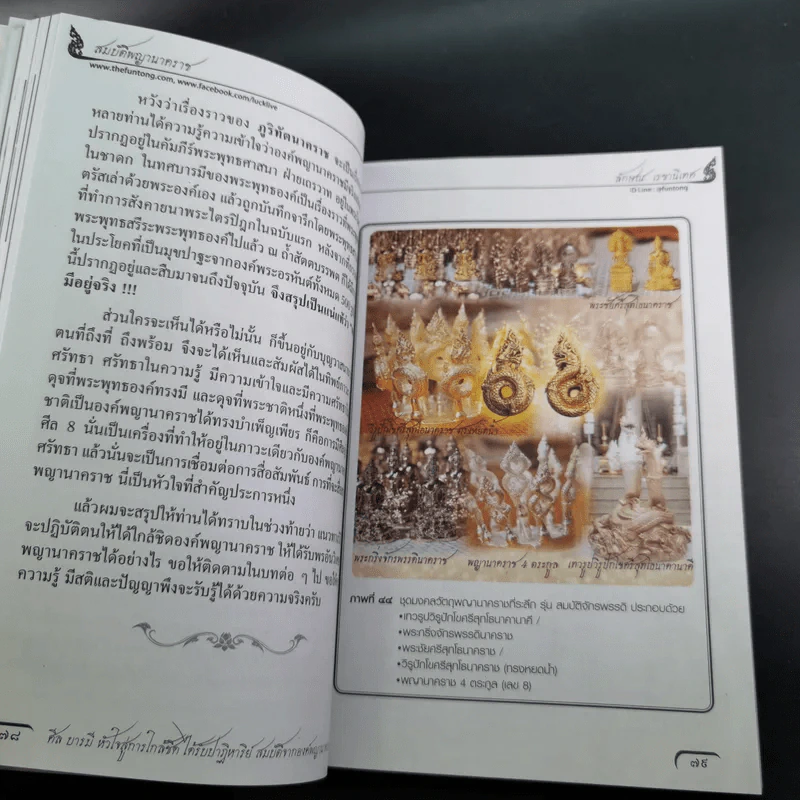 สมบัติพญานาคราช
www.thefuntong.com, www.facebook.com/lucklive
หวังว่าเรื่องราวของ ภูริทัตนาคราช จะเป็น
หลายท่านได้ความรู้ความเข้าใจว่าองค์พญานาคราช
ปรากฏอยู่ในคัมภีร์พระพุทธศาสนา ฝ่ายเถรวาท อยู่
ในชาดก ในทศบารมีของพระพุทธองค์เป็นเรื่องราวที่
ตรัสเล่าด้วยพระองค์เอง แล้วถูกบันทึกจารึกโดยพระ
ที่ทำการสังคายนาพระไตรปิฎกในฉบับแรก หลังจาก
พระพุทธสรีระพระพุทธองค์ไปแล้ว ณ ถ้ำสัตตบรรพต
ในประโยคที่เป็นมุขปาฐะจากองค์พระอรหันต์ทั้งหมด 500
นี้ปรากฏอยู่และสืบมาจนถึงปัจจุบัน จึงสรุปเป็นแน่แท้ว่า
มีอยู่จริง !!!
ส่วนใครจะเห็นได้หรือไม่นั้น ก็ขึ้นอยู่กับบุญวาสนา
ตนที่ถึงที่ ถึงพร้อม จึงจะได้เห็นและสัมผัสได้ใน
ศรัทธา ศรัทธาในความรู้ มีความเข้าใจและมีความ
ดุจที่พระพุทธองค์ทรงมี และดุจที่พระชาติหนึ่งที่พระพุทธองค์
ชาติเป็นองค์พญานาคราชได้ทรงบำเพ็ญเพียร ก็คือการมี
ศีล 8 นั่นเป็นเครื่องที่ทำให้อยู่ในภาวะเดียวกับองค์พญา
ศรัทธา แล้วนั่นจะเป็นการเชื่อมต่อการสื่อสัมพันธ์ การที่จะ
พญานาคราช นี่เป็นหัวใจที่สำคัญประการหนึ่ง
แล้วผมจะสรุปให้ท่านได้ทราบในช่วงท้ายว่า แนวทาง
จะปฏิบัติตนให้ได้ใกล้ชิดองค์พญานาคราช ให้ได้รับพร
พญานาคราชได้อย่างไร ขอให้ติดตามในบทต่อ ๆ ไป
ความรู้ มีสติและปัญญาพึงจะรับรู้ได้ด้วยความจริงครับ
๗๘
ศีล บารมี หัวใจสู่การใกล้ชิด ได้รับปาฏิหาริย์ สมบัติจากองค์พญา
ลักษณ์ เรขานิเทศ
ID Line: @funtong
พระชัยศรีสุทโธนาคราช
พระกริ่งจักรพรรดินาคราช
พญานาคราช 4 ตระกูล
เทวรูปวิรูปักโขศรีสุทโธนาคานาคี
ภาพที่ ๔๔ ชุดมงคลวัตถุพญานาคราชที่ระลึก รุ่น สมบัติจักรพรรดิ ประกอบด้วย
•เทวรูปวิรูปักโขศรีสุทโธนาคานาคี /
•พระกริ่งจักรพรรดินาคราช
•พระชัยศรีสุทโธนาคราช /
•วิรูปักโขศรีสุทโธนาคราช (ทรงหยดน้ำ)
•พญานาคราช 4 ตระกูล (เลข 8)
๗๙